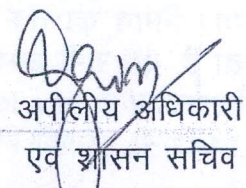 अपीलीय अधिकारी
एवं शासन सचिव